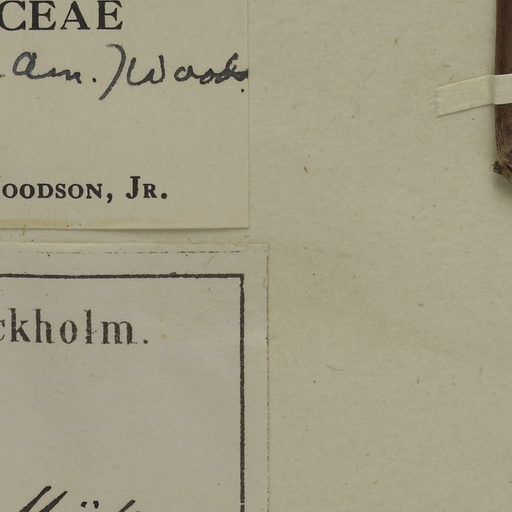 CEAE
Am.) Woods.
OODSON, JR.
ckholm.